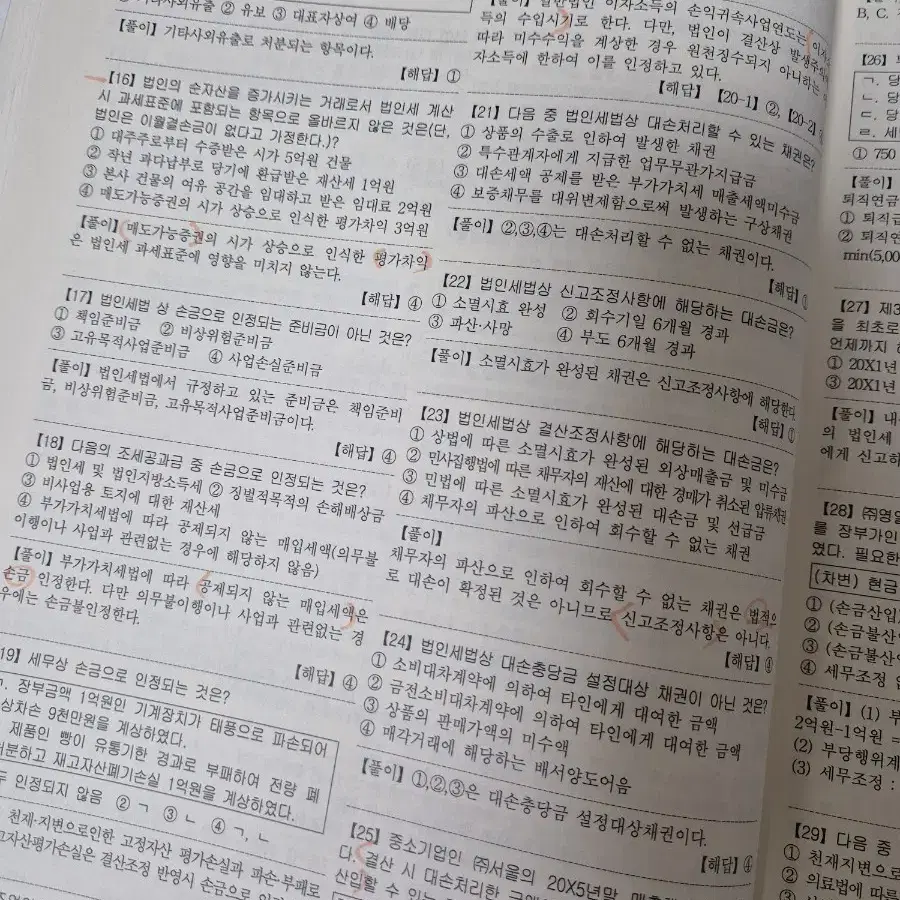 기타사외유출 ② 유보 ③ 대표자상여 ④ 배당
[풀이] 기타사외유출로 처분되는 항목이다.
【해답】 ①
【16】 법인의 순자산을 증가시키는 거래로서 법인세 계산
시 과세표준에 포함되는 항목으로 올바르지 않은 것은(단,
법인은 이월결손금이 없다고 가정한다.)?
① 대주주로부터 수증받은 시가 5억원 건물
② 작년 과다납부로 당기에 환급받은 재산세 1억원
③ 본사 건물의 여유 공간을 임대하고 받은 임대료 2억원
④ 매도가능증권의 시가 상승으로 인식한 평가차익 3억원
[풀이] 매도가능증권의 시가 상승으로 인식한 평가차익
은 법인세 과세표준에 영향을 미치지 않는다.
【해답】 ④
【17】 법인세법 상 손금으로 인정되는 준비금이 아닌 것은?
① 책임준비금 ② 비상위험준비금
③ 고유목적사업준비금 ④ 사업손실준비금
[풀이] 법인세법에서 규정하고 있는 준비금은 책임준비
금, 비상위험준비금, 고유목적사업준비금이다.
【해답】 ④
【18】 다음의 조세공과금 중 손금으로 인정되는 것은?
① 법인세 및 법인지방소득세 ② 징벌적목적의 손해배상금
③ 비사업용 토지에 대한 재산세
④ 부가가치세법에 따라 공제되지 않는 매입세액(의무불
이행이나 사업과 관련없는 경우에 해당하지 않음)
[풀이] 부가가치세법에 따라 공제되지 않는 매입세액은
손금 인정한다. 다만 의무불이행이나 사업과 관련없는 경
우에는 손금불인정한다.
【해답】 ④
19】 세무상 손금으로 인정되는 것은?
장부금액 1억원인 기계장치가 태풍으로 파손되어
상차손 9천만원을 계상하였다.
제품인 빵이 유통기한 경과로 부패하여 전량 폐
처분하고 재고자산폐기손실 1억원을 계상하였다.
두 인정되지 않음 ② ㄱ ③ ㄴ ④ ㄱ, ㄴ
천재·지변으로인한 고정자산 평가손실과 파손·부패로
고자산평가손실은 결산조정 반영시 손금으로
[풀이] 일반법인 이자소득의 손익귀속사업연도는 이자
득의 수입시기로 한다. 다만, 법인이 결산상 발생주의에
따라 미수수익을 계상한 경우 원천징수되지 아니하는
자소득에 한하여 이를 인정하고 있다.
【해답】 【20-1】 ②, 【20-2】
【21】 다음 중 법인세법상 대손처리할 수 있는 채권은?
① 상품의 수출로 인하여 발생한 채권
② 특수관계자에게 지급한 업무무관가지급금
③ 대손세액 공제를 받은 부가가치세 매출세액미수금
④ 보증채무를 대위변제함으로써 발생하는 구상채권
[풀이] ②,③,④는 대손처리할 수 없는 채권이다.
【해답】 ①
【22】 법인세법상 신고조정사항에 해당하는 대손금은?
① 소멸시효 완성 ② 회수기일 6개월 경과
③ 파산·사망 ④ 부도 6개월 경과
[풀이] 소멸시효가 완성된 채권은 신고조정사항에 해당한다.
【해답】 ①
【23】 법인세법상 결산조정사항에 해당하는 대손금은?
① 상법에 따른 소멸시효가 완성된 외상매출금 및 미수금
② 민사집행법에 따른 채무자의 재산에 대한 경매가 취소된 압류채권
③ 민법에 따른 소멸시효가 완성된 대손금 및 선급금
④ 채무자의 파산으로 인하여 회수할 수 없는 채권
[풀이]
채무자의 파산으로 인하여 회수할 수 없는 채권은 법적으
로 대손이 확정된 것은 아니므로 신고조정사항은 아니다.
【해답】 ④
【24】 법인세법상 대손충당금 설정대상 채권이 아닌 것은?
① 소비대차계약에 의하여 타인에게 대여한 금액
② 금전소비대차계약에 의하여 타인에게 대여한 금액
③ 상품의 판매가액의 미수액
④ 매각거래에 해당하는 배서양도어음
[풀이] ①,②,③은 대손충당금 설정대상채권이다.
【해답】 ④
【25】 중소기업인 ㈜서울의 20X5년말
다. 결산 시 대손처리한
산입할 수 있는
B, C.
【26】
ㄱ. 당
ㄴ. 당
ㄷ. 당
ㄹ. 세무
① 750
[풀이]
퇴직연금
① 퇴직급
② 퇴직연
min(5,00
【27】 제3
을 최초로
언제까지
① 20X1년
③ 20X1년
[풀이] 내
의 법인세
에게 신고하
【28】 ㈜영일
를 장부가인
였다. 필요한
(차변) 현금
① (손금산입)
② (손금불산
③ (손금불산
④ 세무조정
[풀이] (1) 부
2억원-1억원 =
(2) 부당행위계
(3) 세무조정 :
【29】 다음 중
① 천재지변으로
② 의료법에 따른